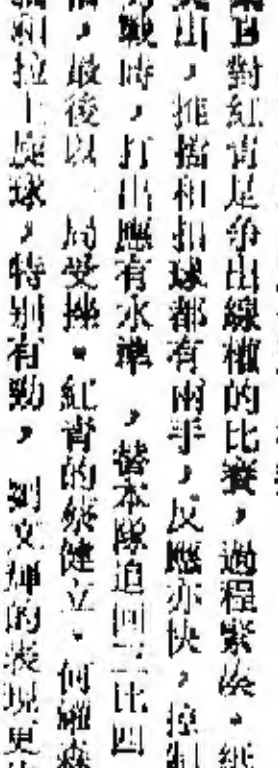 對紅青是争出線權的比賽，過程緊張。紙
山，推擋和扣球都有兩手，反應亦快，控制
戰時，打出應有水準，替本隊追回三比四
，最後以一局受挫。紅青的蔡健立、何耀森
和拉上旋球，特别有勁，劉文輝的表現更